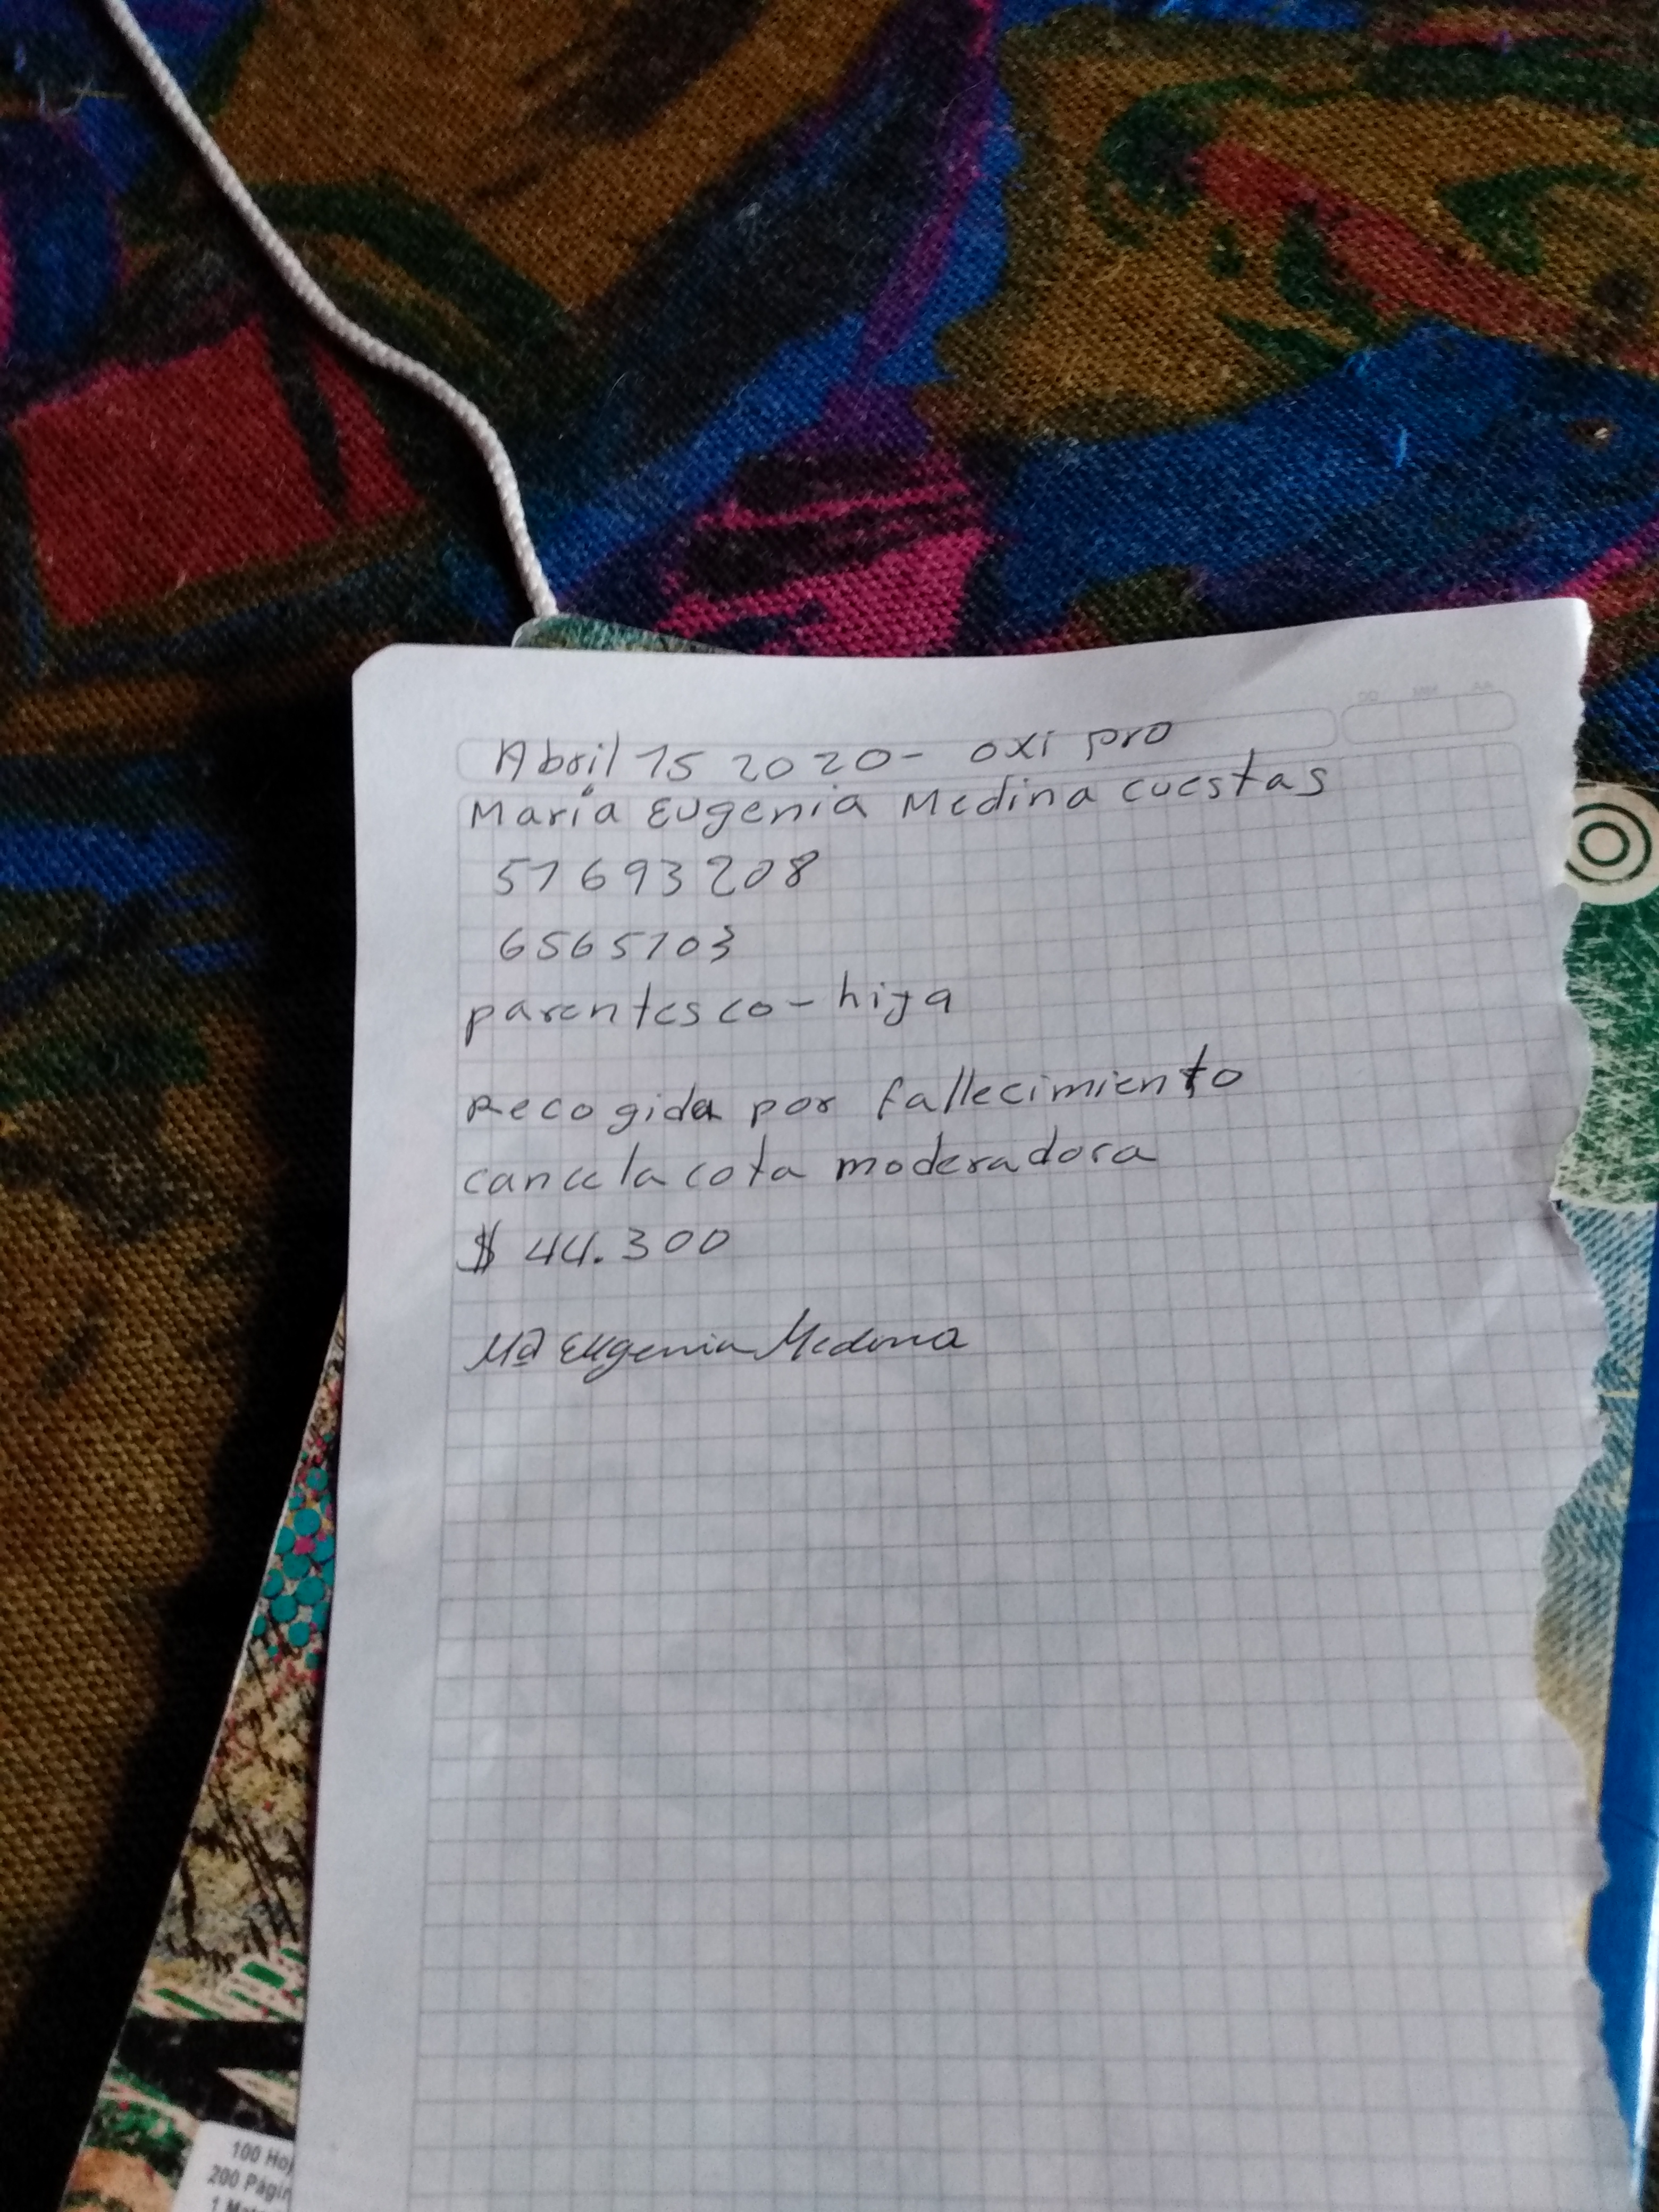 Abril 15 2020- oxi pro
María Eugenia Medina cuestas
51693208
6565103
parentesco - hija
Recogida por fallecimiento
cancela cota moderadora
$ 44.300
Mª Eugenia Medina
100 Hoj
200 Págin